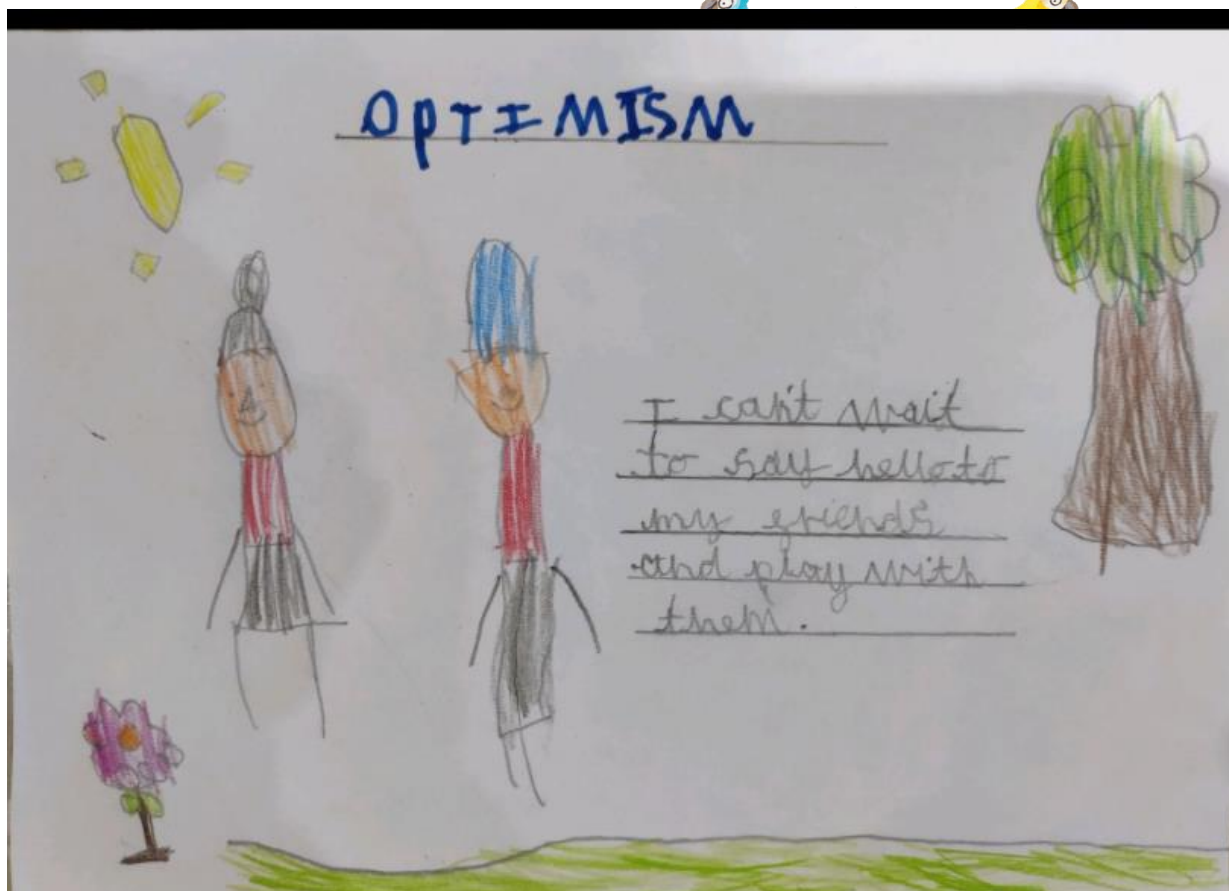 OPTIMISM
I can't wait
to say hello to
my friends
and play with
them.